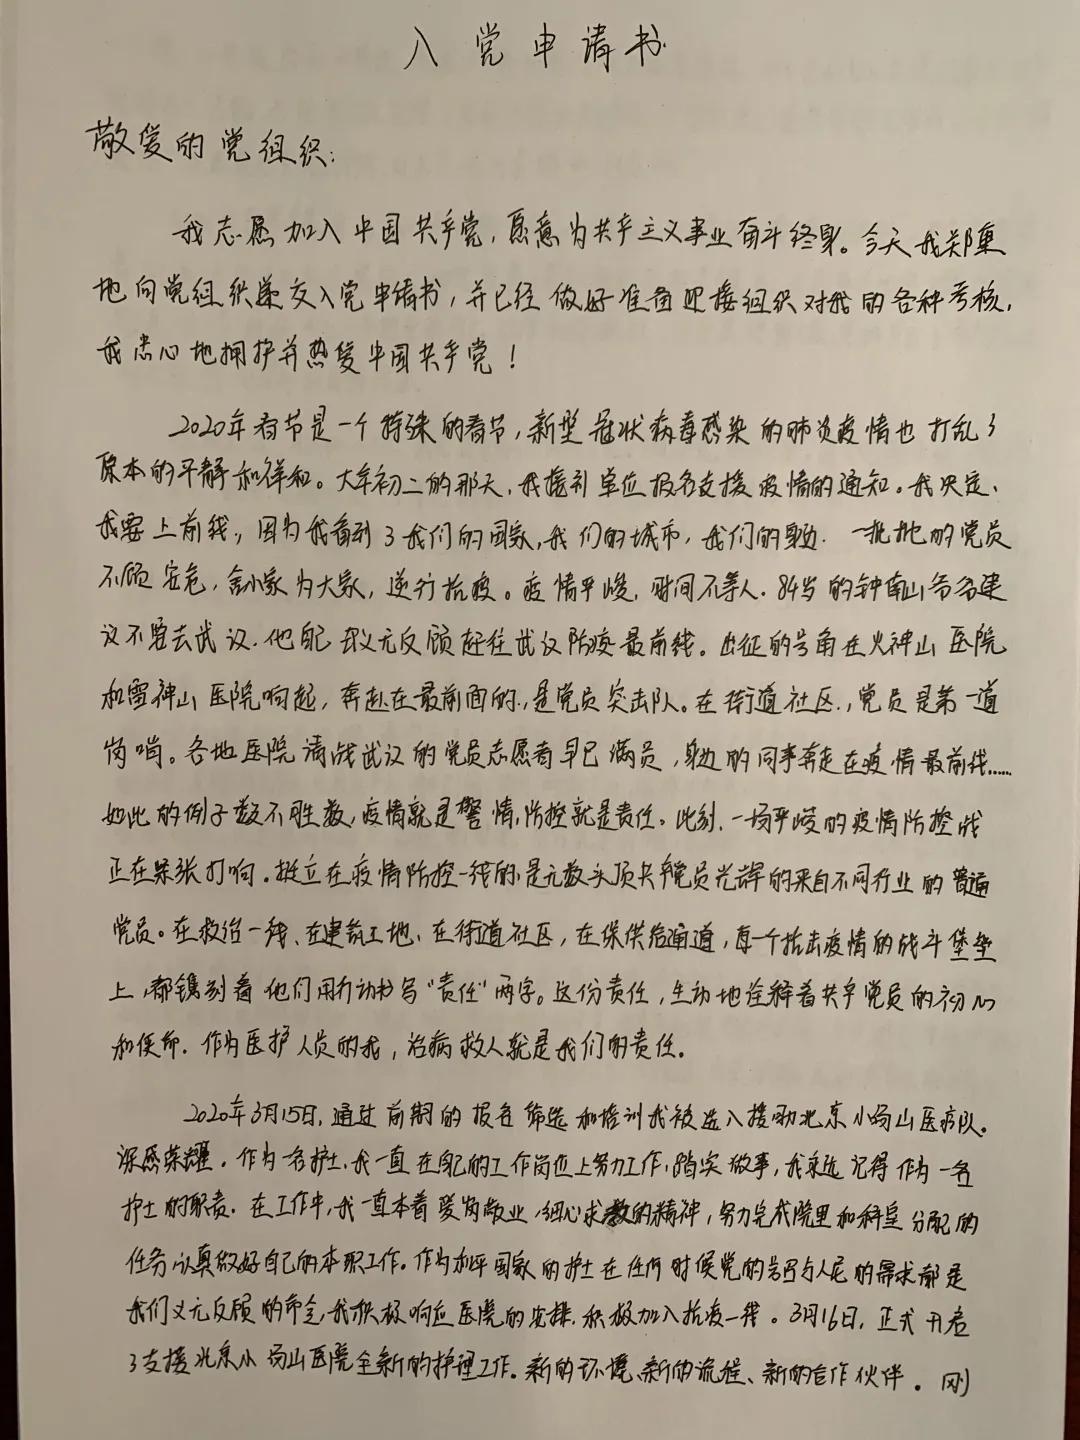 入党申请书
敬爱的党组织:
我志愿加入中国共产党,愿意为共产主义事业奋斗终身。今天我郑重
地向党组织递交入党申请书,并已经做好准备迎接组织对我的各种考核,
我忠心地拥护并热爱中国共产党!
2020年春节是一个特殊的春节,新型冠状病毒感染的肺炎疫情也打乱了
原本的平静和祥和。大年初二的那天,我接到单位报名支援疫情的通知。我决定,
我要上前线,因为我看到了我们的国家,我们的城市,我们的身边.一批批的党员
不顾安危,舍小家为大家,逆行抗疫。疫情严峻,时间不等人.84岁的钟南山爷爷建
议不要去武汉.他自己却义无反顾赶往武汉防疫最前线。出征的号角在火神山医院
和雷神山医院响起,奔赴在最前面的,是党员突击队。在街道社区,党员是第一道
岗哨。各地医院请战武汉的党员志愿者早已满员,身边的同事奔走在疫情最前线......
如此的例子数不胜数,疫情就是警情,防控就是责任。此刻,一场严峻的疫情防控战
正在紧张打响.挺立在疫情防控一线的,是无数头顶共产党员光辉的来自不同行业的普通
党员。在救治一线、在建筑工地、在街道社区,在保供给通道,每一个抗击疫情的战斗堡垒
上,都镌刻着他们用行动书写“责任”两字。这份责任,生动地诠释着共产党员的初心
和使命.作为医护人员的我,治病救人就是我们的责任。
2020年3月15日,通过前期的报名筛选和培训我被选入援助北京小汤山医疗队。
深感荣耀.作为一名护士,我一直在自己的工作岗位上努力工作,踏实做事,我永远记得作为一名
护士的职责.在工作中,我一直本着爱岗敬业,细心求教的精神,努力完成院里和科室分配的
任务,认真做好自己的本职工作。作为和平国家的护士在任何时候党的号召与人民的需求都是
我们义无反顾的命令,我积极响应医院的安排,积极加入抗疫一线。3月16日,正式开启
了支援北京小汤山医院全新的护理工作.新的环境、新的流程、新的合作伙伴。刚